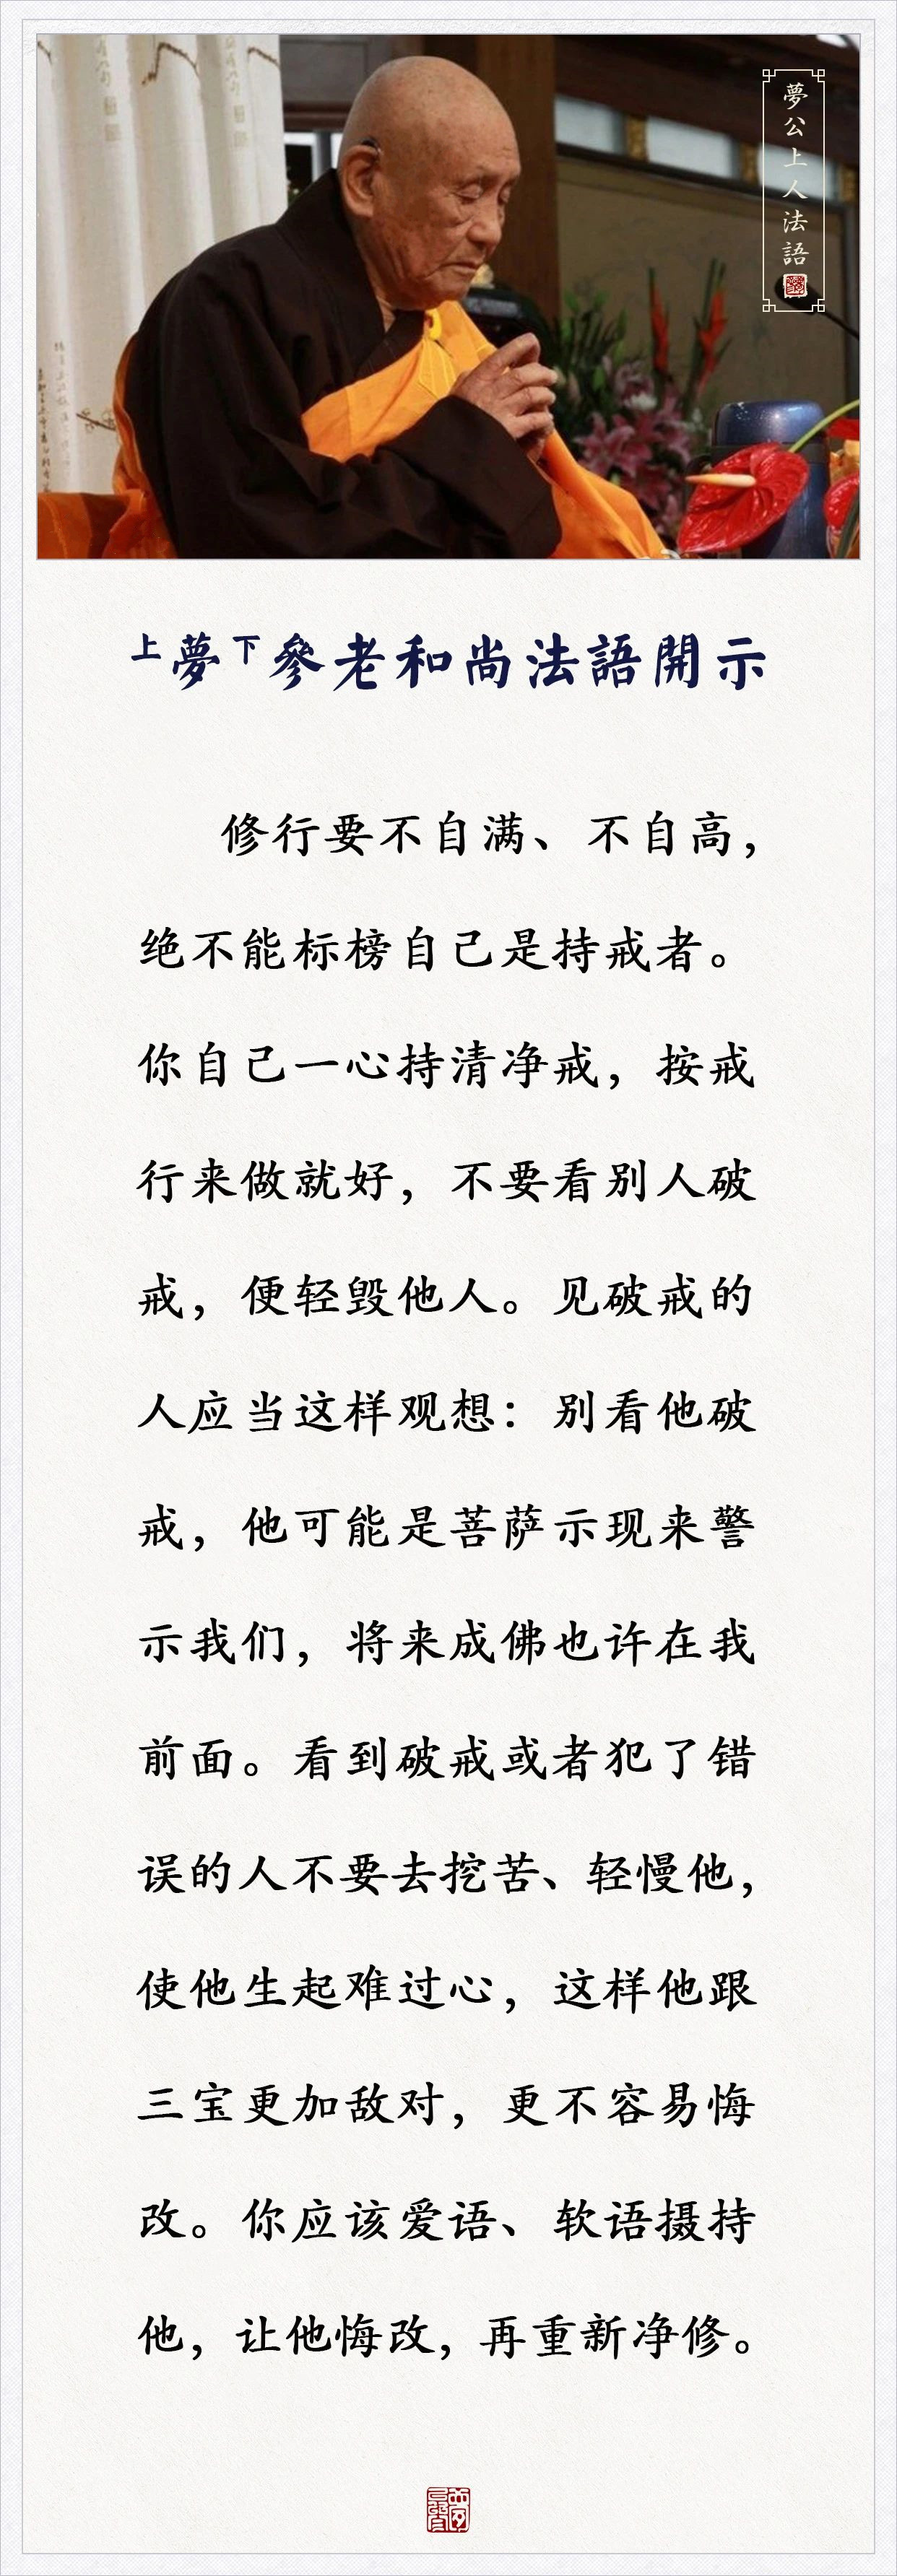 夢公上人法語
上夢下參老和尚法語開示
修行要不自满、不自高，
绝不能标榜自己是持戒者。
你自己一心持清净戒，按戒
行来做就好，不要看别人破
戒，便轻毁他人。见破戒的
人应当这样观想：别看他破
戒，他可能是菩萨示现来警
示我们，将来成佛也许在我
前面。看到破戒或者犯了错
误的人不要去挖苦、轻慢他，
使他生起难过心，这样他跟
三宝更加敌对，更不容易悔
改。你应该爱语、软语摄持
他，让他悔改，再重新净修。